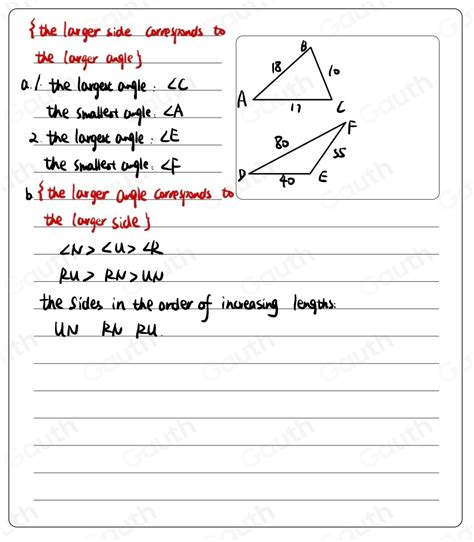 {the larger side corresponds to
the larger angle}
a. 1. the largest angle: ∠C
the smallest angle: ∠A
2. the largest angle: ∠E
the smallest angle: ∠F
b. {the larger angle corresponds to
the larger side}
∠N > ∠U > ∠R
RU > RN > UN
the sides in the order of increasing lengths:
UN RN RU.
B
18
10
A
17
C
F
80
55
D
40
E
Gauth